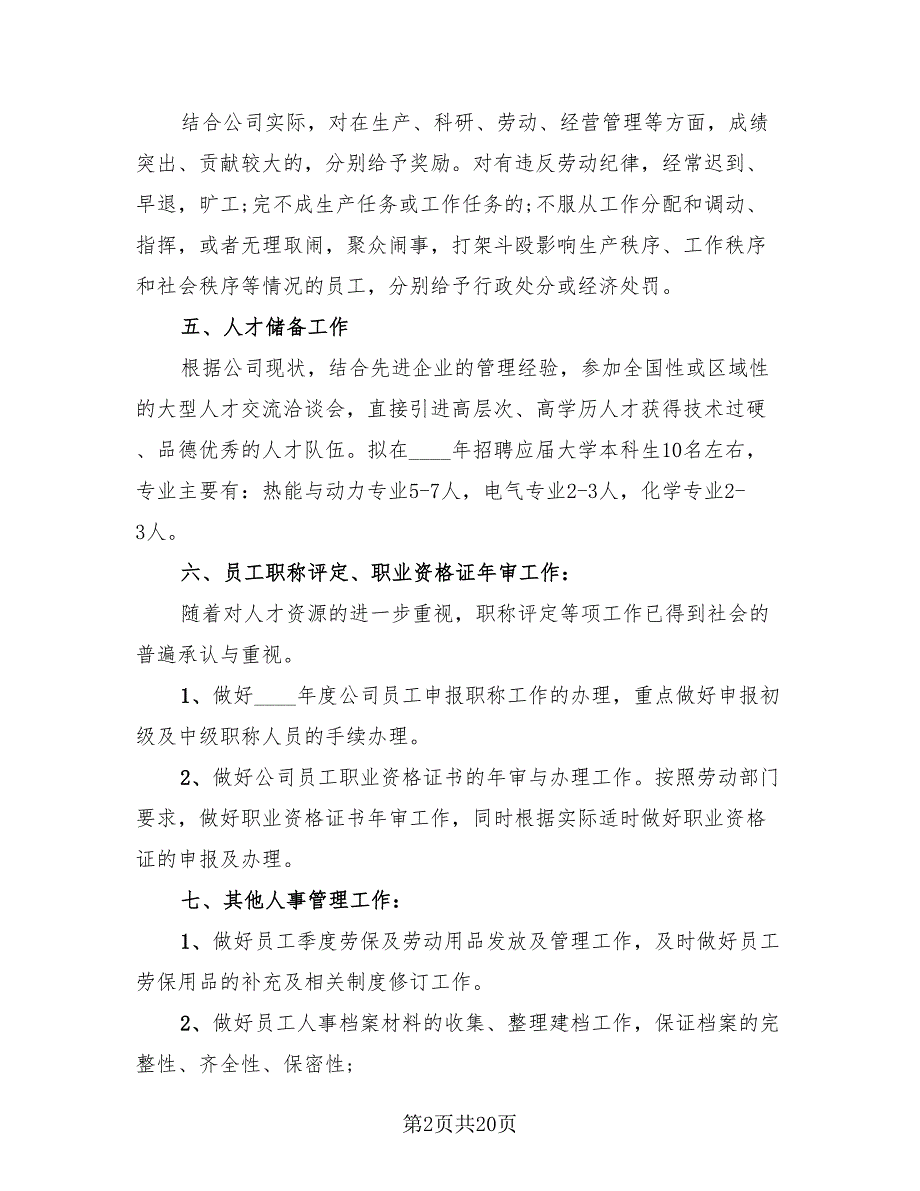 结合公司实际，对在生产、科研、劳动、经营管理等方面，成绩
突出、贡献较大的，分别给予奖励。对有违反劳动纪律，经常迟到、
早退，旷工;完不成生产任务或工作任务的;不服从工作分配和调动、
指挥，或者无理取闹，聚众闹事，打架斗殴影响生产秩序、工作秩序
和社会秩序等情况的员工，分别给予行政处分或经济处罚。
五、人才储备工作
根据公司现状，结合先进企业的管理经验，参加全国性或区域性
的大型人才交流洽谈会，直接引进高层次、高学历人才获得技术过硬
、品德优秀的人才队伍。拟在____年招聘应届大学本科生10名左右，
专业主要有：热能与动力专业5-7人，电气专业2-3人，化学专业2-
3人。
六、员工职称评定、职业资格证年审工作：
随着对人才资源的进一步重视，职称评定等项工作已得到社会的
普遍承认与重视。
1、做好____年度公司员工申报职称工作的办理，重点做好申报初
级及中级职称人员的手续办理。
2、做好公司员工职业资格证书的年审与办理工作。按照劳动部门
要求，做好职业资格证书年审工作，同时根据实际适时做好职业资格
证的申报及办理。
七、其他人事管理工作：
1、做好员工季度劳保及劳动用品发放及管理工作，及时做好员工
劳保用品的补充及相关制度修订工作。
2、做好员工人事档案材料的收集、整理建档工作，保证档案的完
整性、齐全性、保密性;
第2页共20页